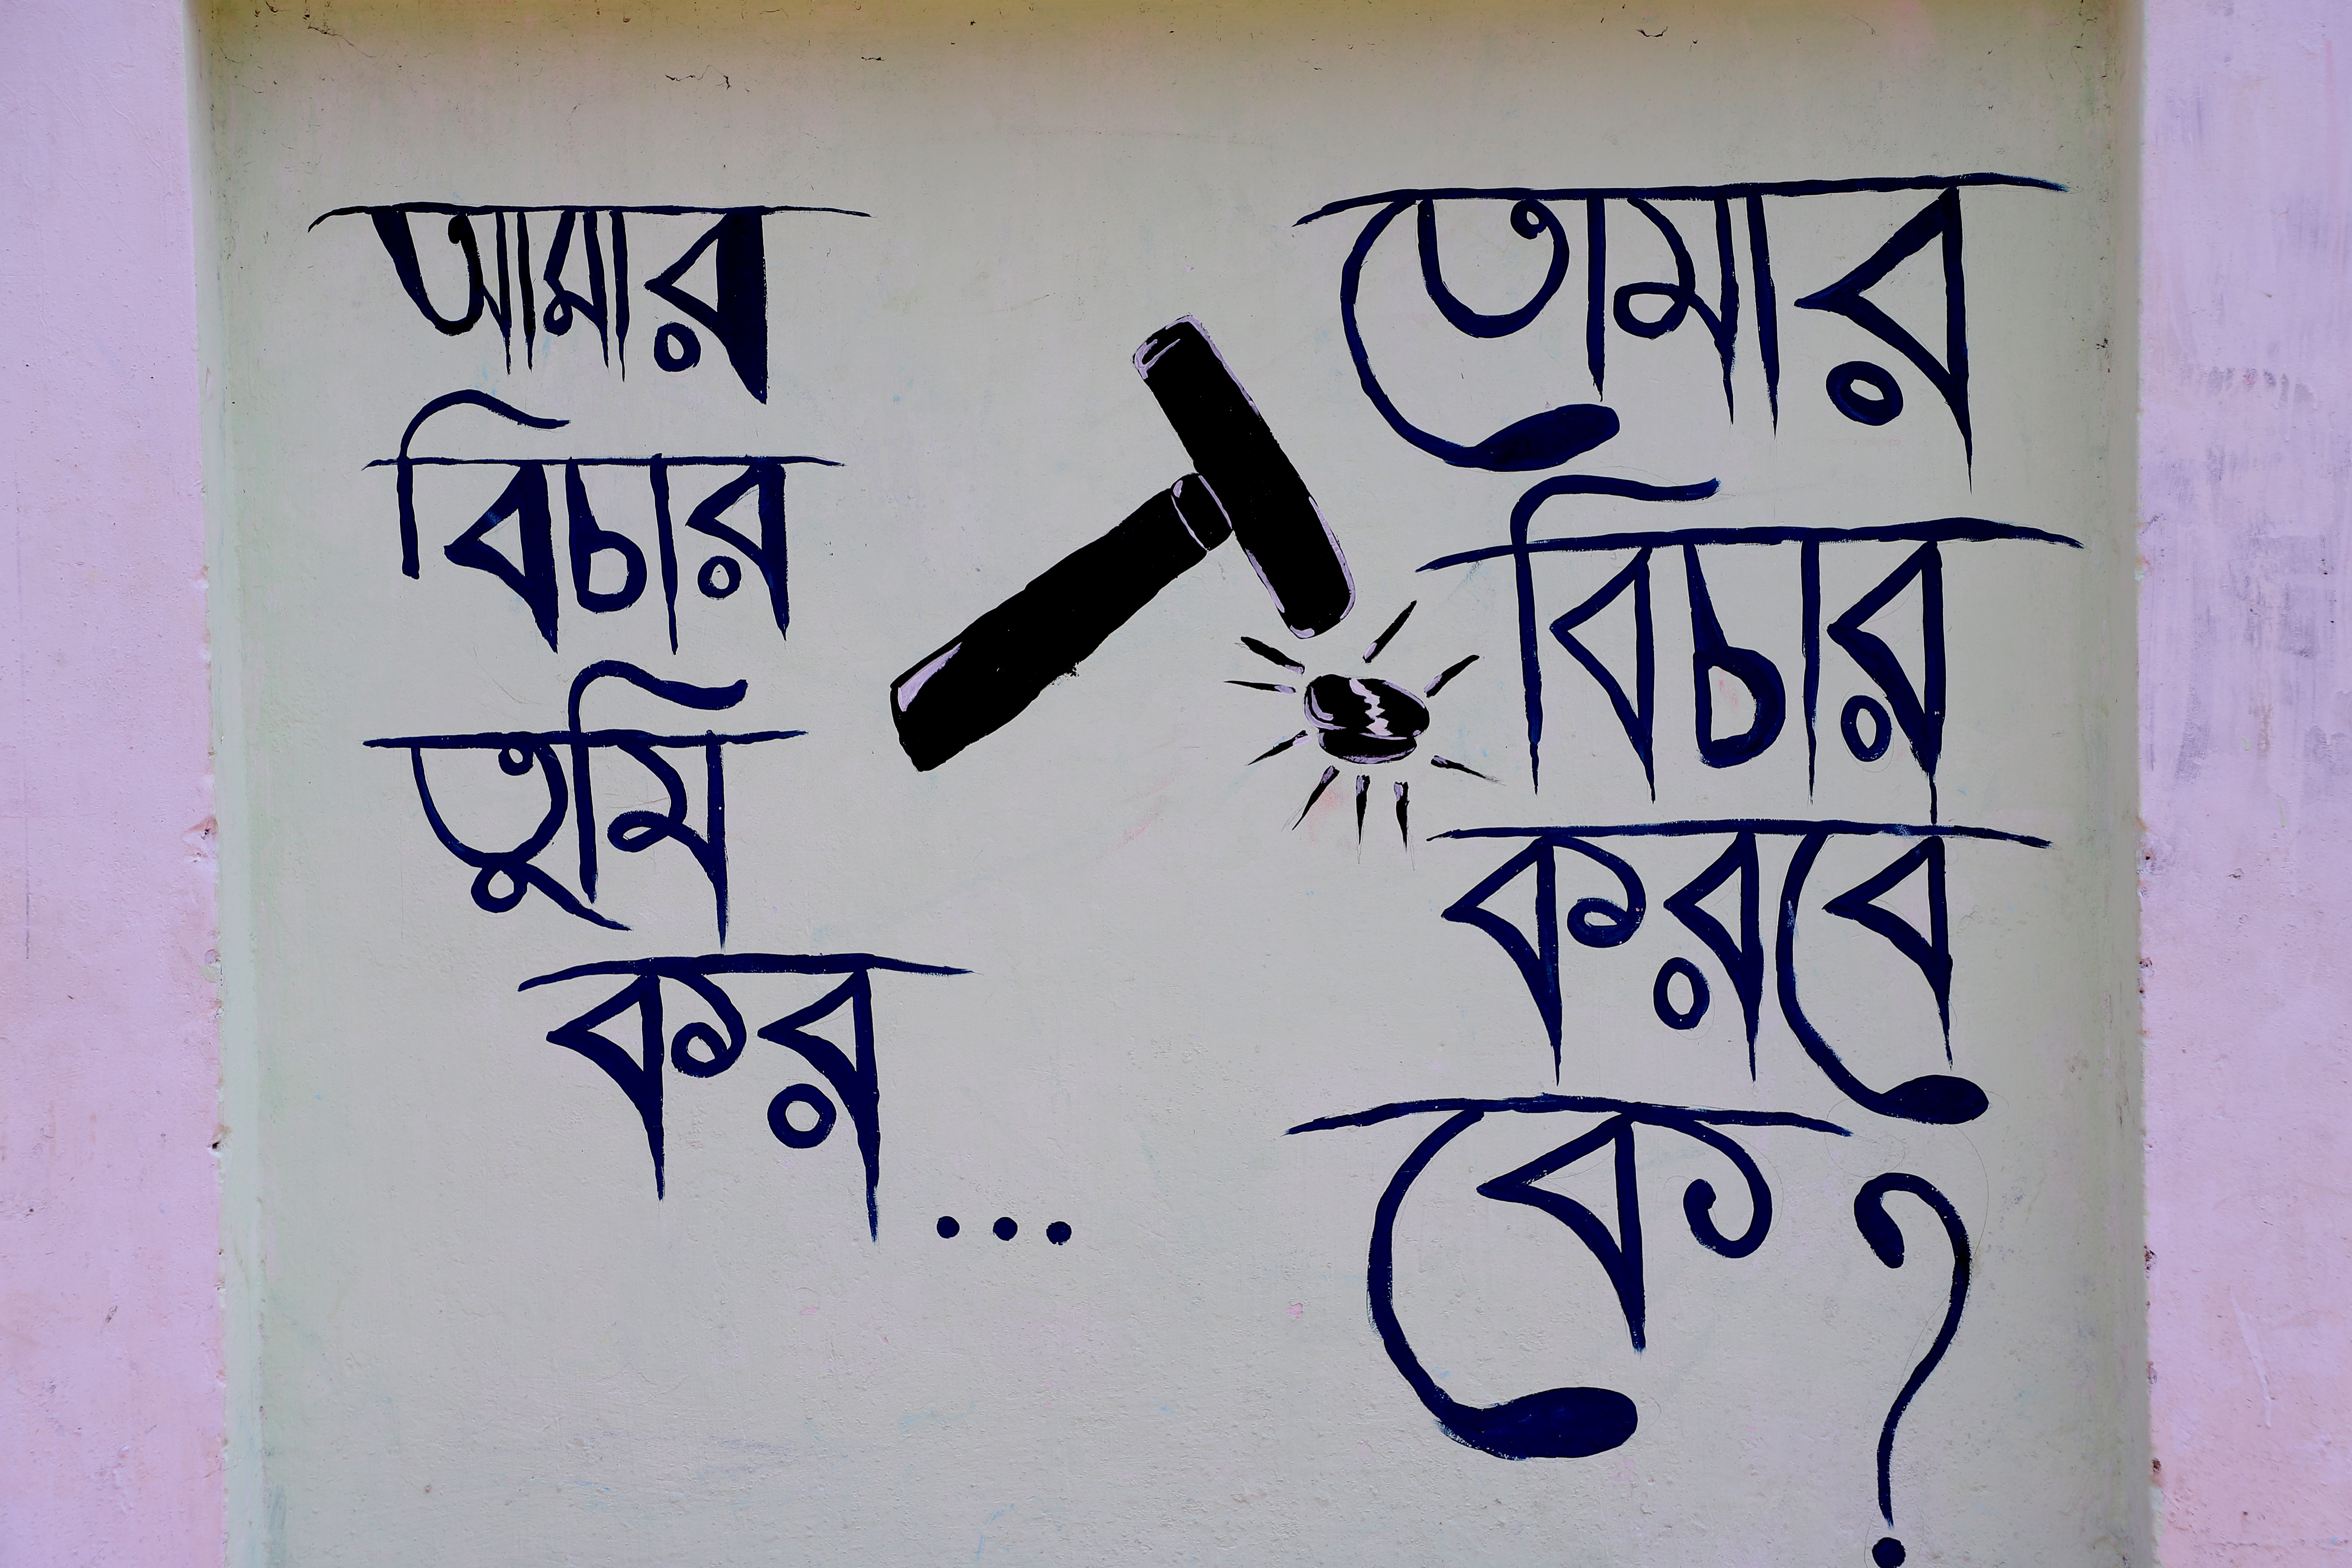 আমার
বিচার
তুমি
কর...
তোমার
বিচার
করবে
কে?